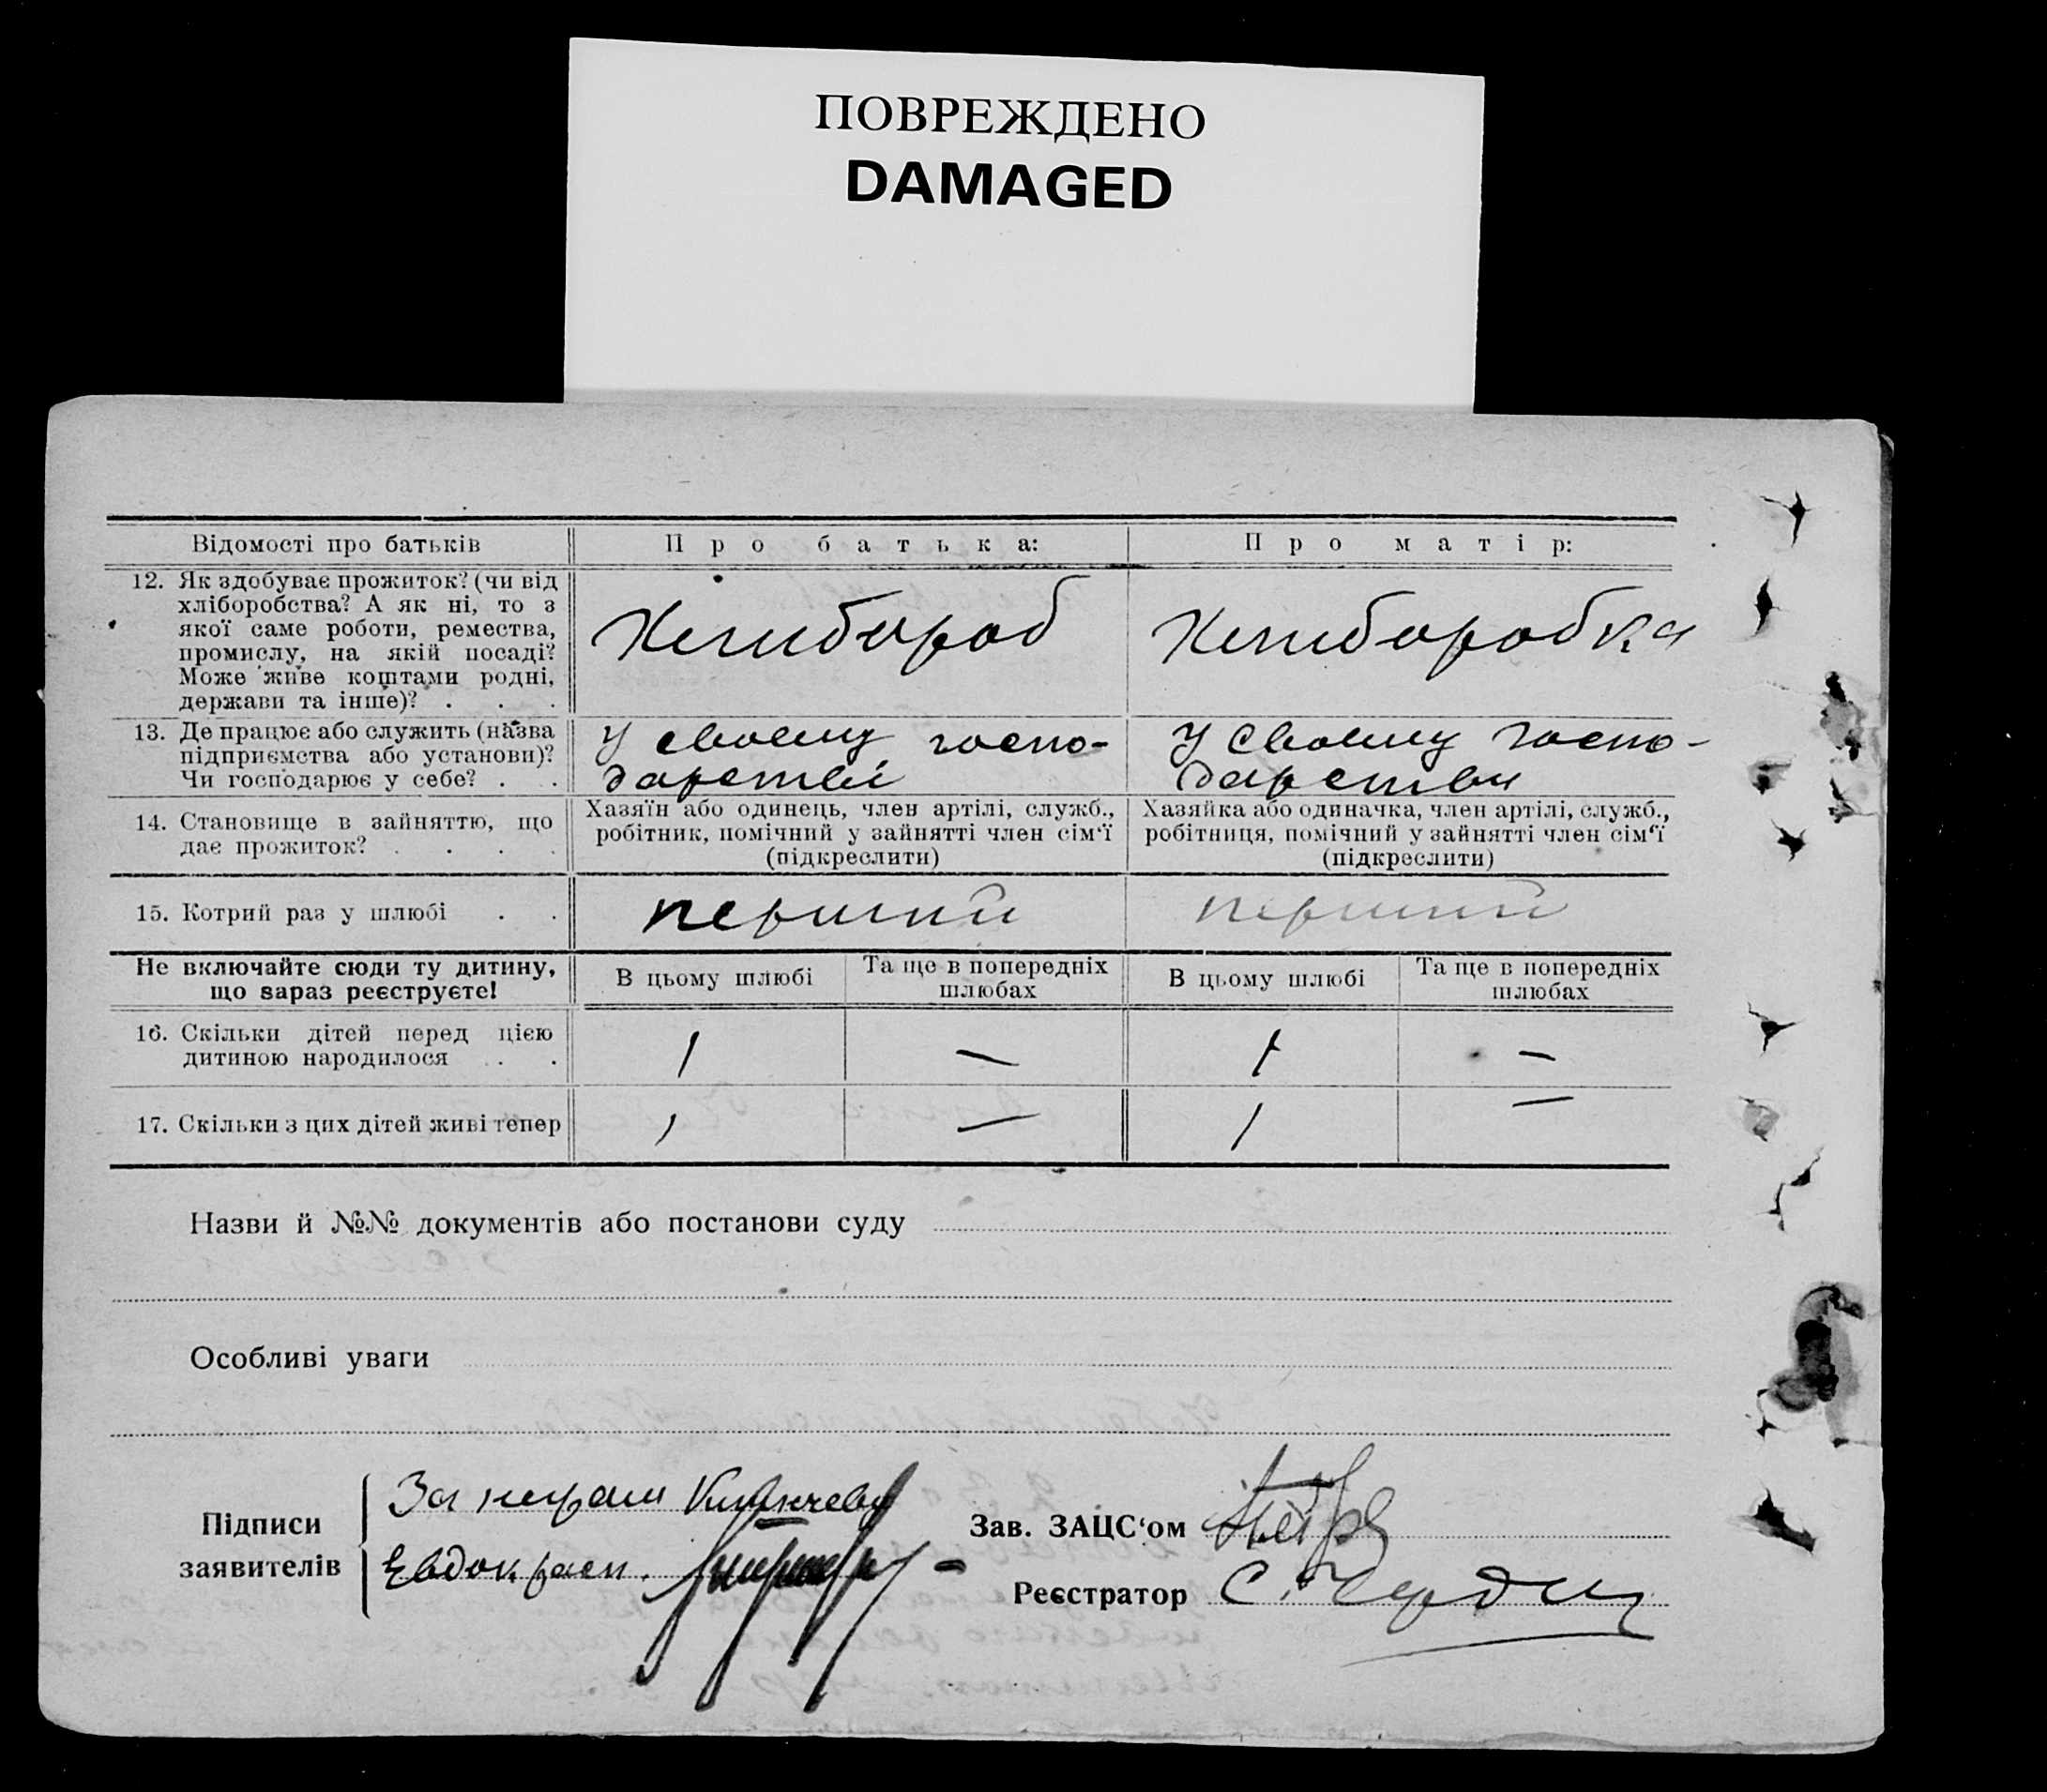 ПОВРЕЖДЕНО
DAMAGED
Відомості про батьків
Про батька:
Про матір:
12. Як здобуває прожиток? (чи від
хліборобства? А як ні, то з
якої саме роботи, ремества,
промислу, на якій посаді?
Може живе коштами родні,
держави та інше)? . . .
Хлибороб
Хлиборобка
13. Де працює або служить (назва
підприємства або установи)?
Чи господарює у себе? . .
У своему госпо-
дарстві
У своему госпо-
дарстви
14. Становище в зайняттю, що
дає прожиток? . . . .
Хазяїн або одинець, член артілі, служб.,
робітник, помічний у зайнятті член сім‘ї
(підкреслити)
Хазяйка або одиначка, член артілі, служб.,
робітниця, помічний у зайнятті член сім‘ї
(підкреслити)
15. Котрий раз у шлюбі . .
перший
перший
Не включайте сюди ту дитину,
що зараз реєструєте!
В цьому шлюбі
Та ще в попередніх
шлюбах
В цьому шлюбі
Та ще в попередніх
шлюбах
16. Скільки дітей перед цією
дитиною народилося . .
1 — 1 —
17. Скільки з цих дітей живі тепер
1 — 1 —
Назви й №№ документів або постанови суду
Особливі уваги
Підписи
заявителів
За неграм
Евдок
Зав. ЗАЦС‘ом
Реєстратор С.